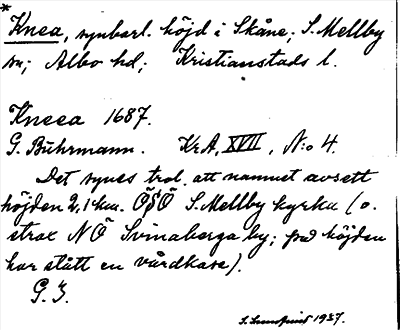 *
Knea, synbarl. höjd i Skåne; S. Mellby
sn; Albo hd; Kristianstads l.
Kneea 1687.
G. Buhrmann. KrA, XVII, N:o 4.
Det synes trol. att namnet avsett
höjden 2,1 km. ÖSÖ S. Mellby kyrka (o.
strax NÖ Svinaberga by; på höjden
har stått en vårdkase).
G. I.
1937.